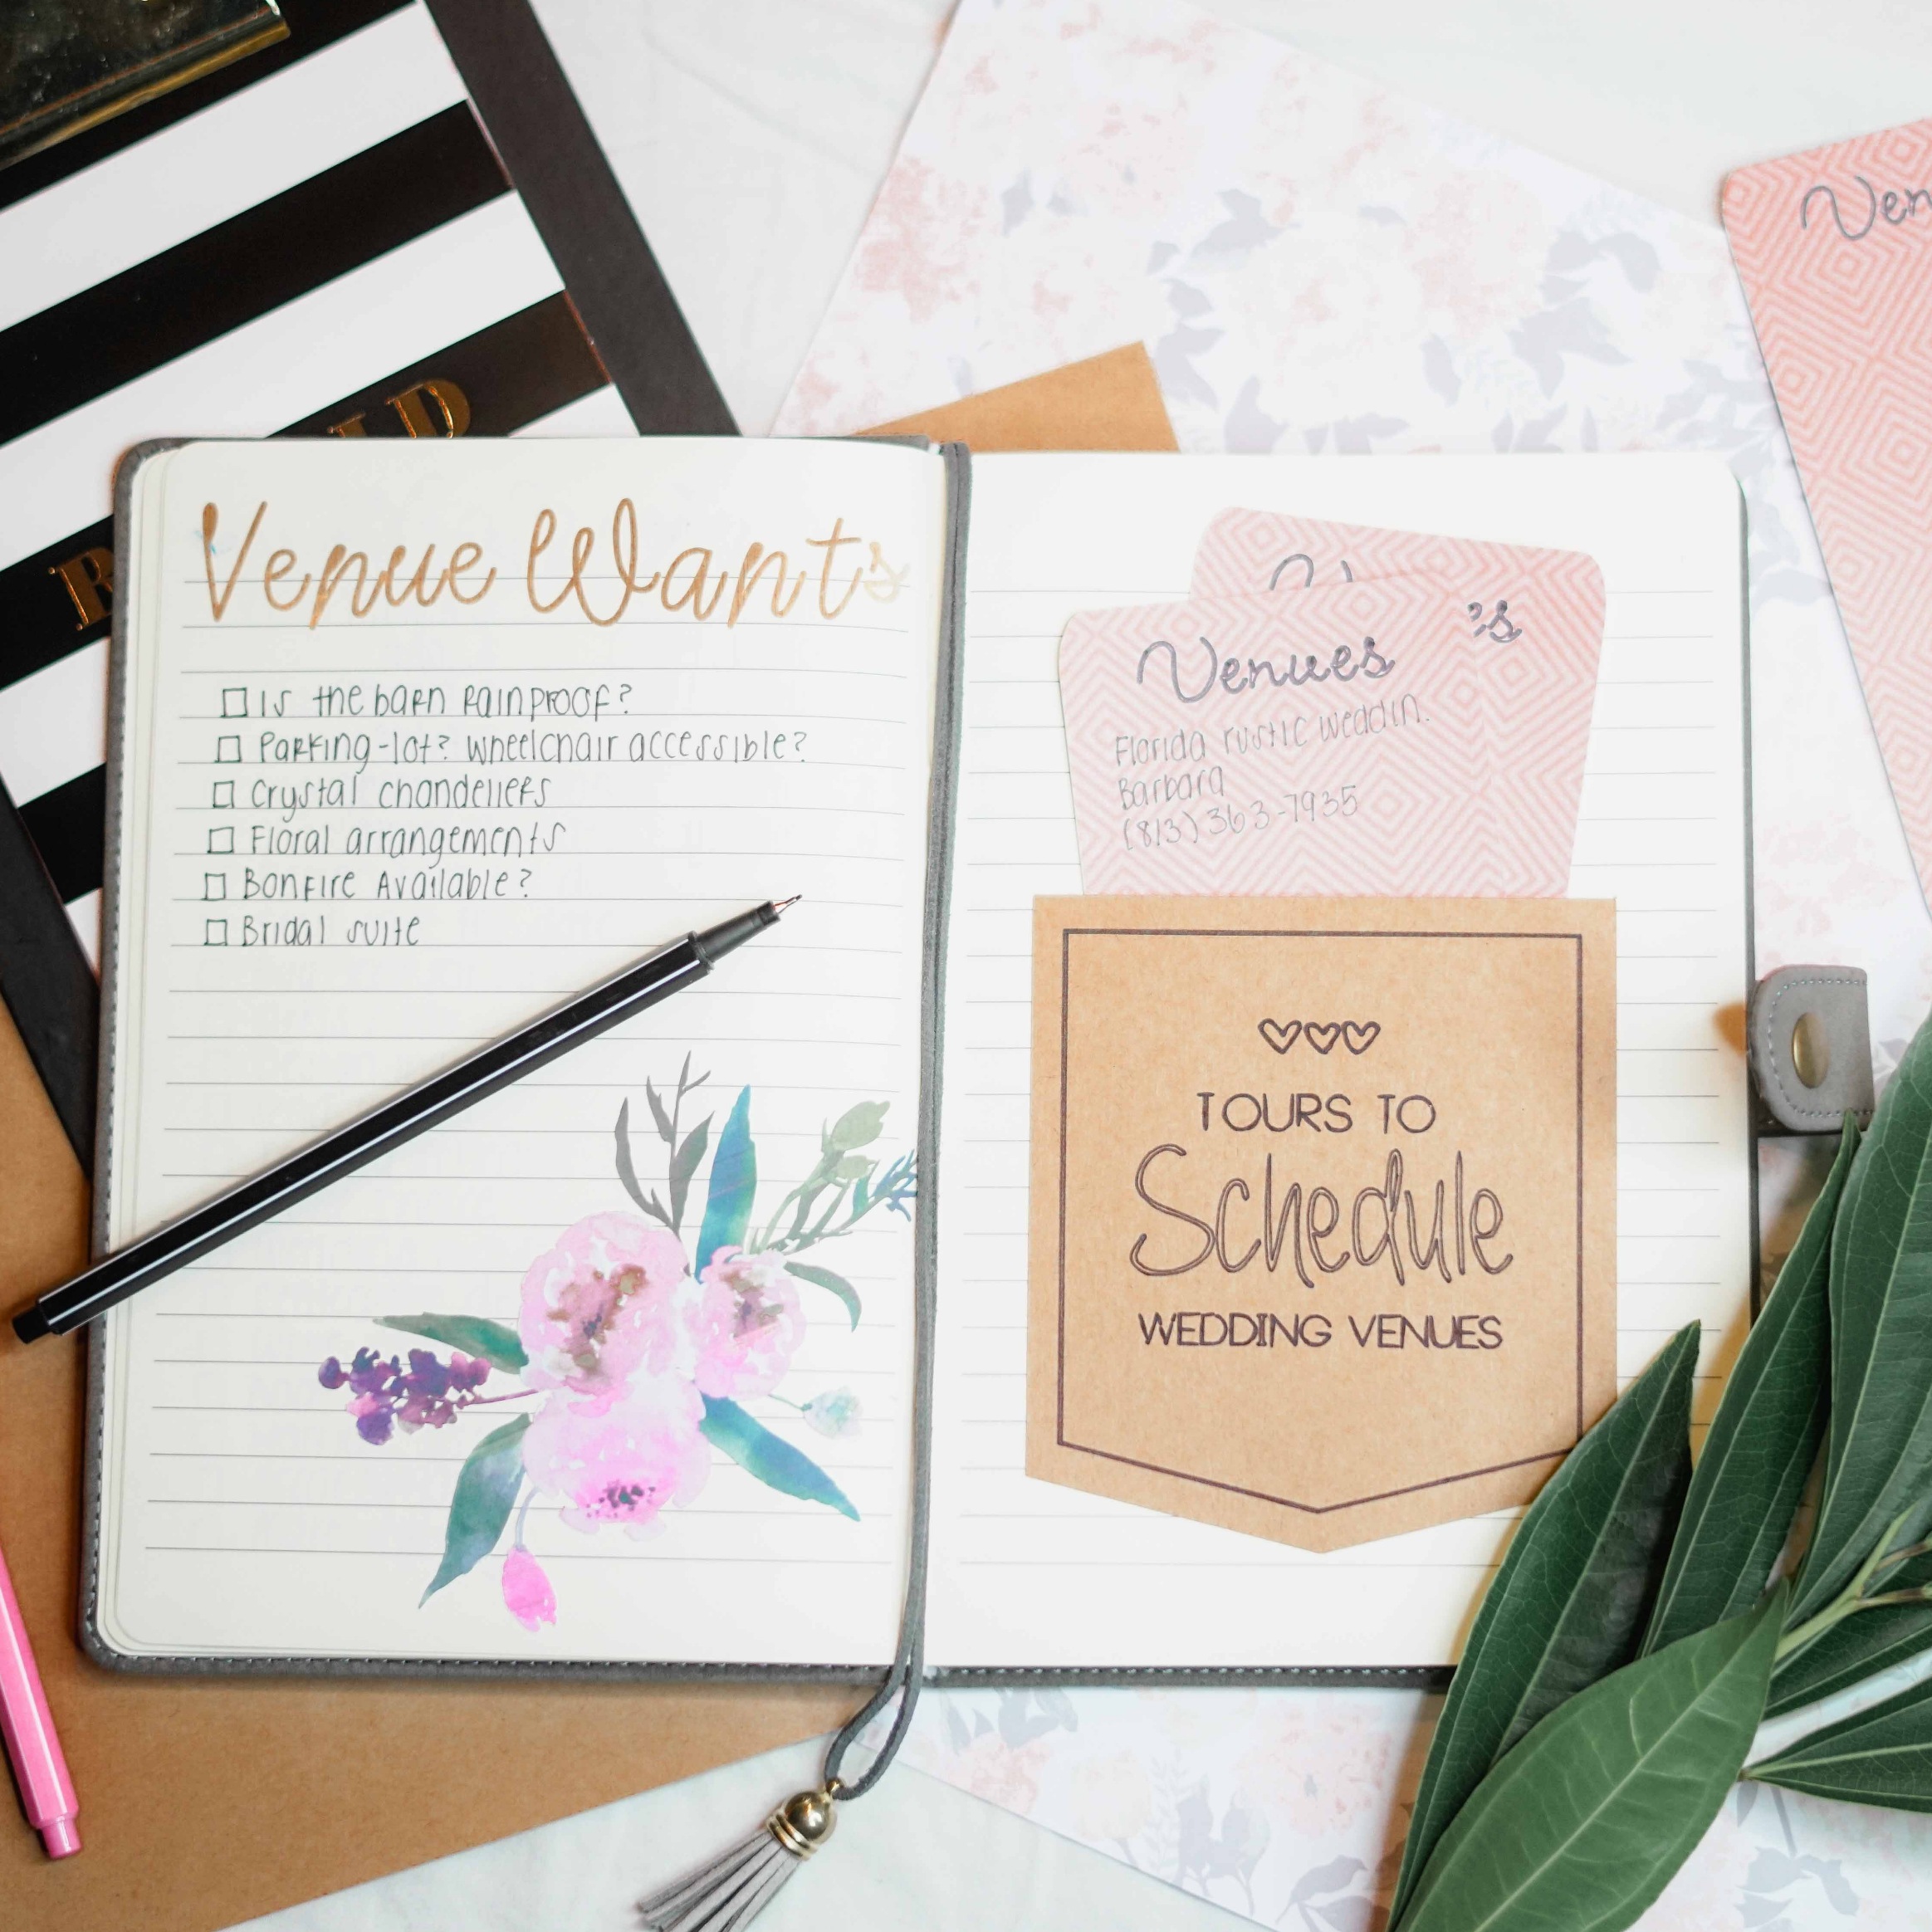 Venue Wants
Is the barn Rainproof?
Parking-lot? wheelchair accessible?
Crystal chandeliers
Floral arrangements
Bonfire Available?
Bridal suite
's
Venues
Florida rustic weddin.
Barbara
(813) 363-7935
TOURS TO
Schedule
WEDDING VENUES